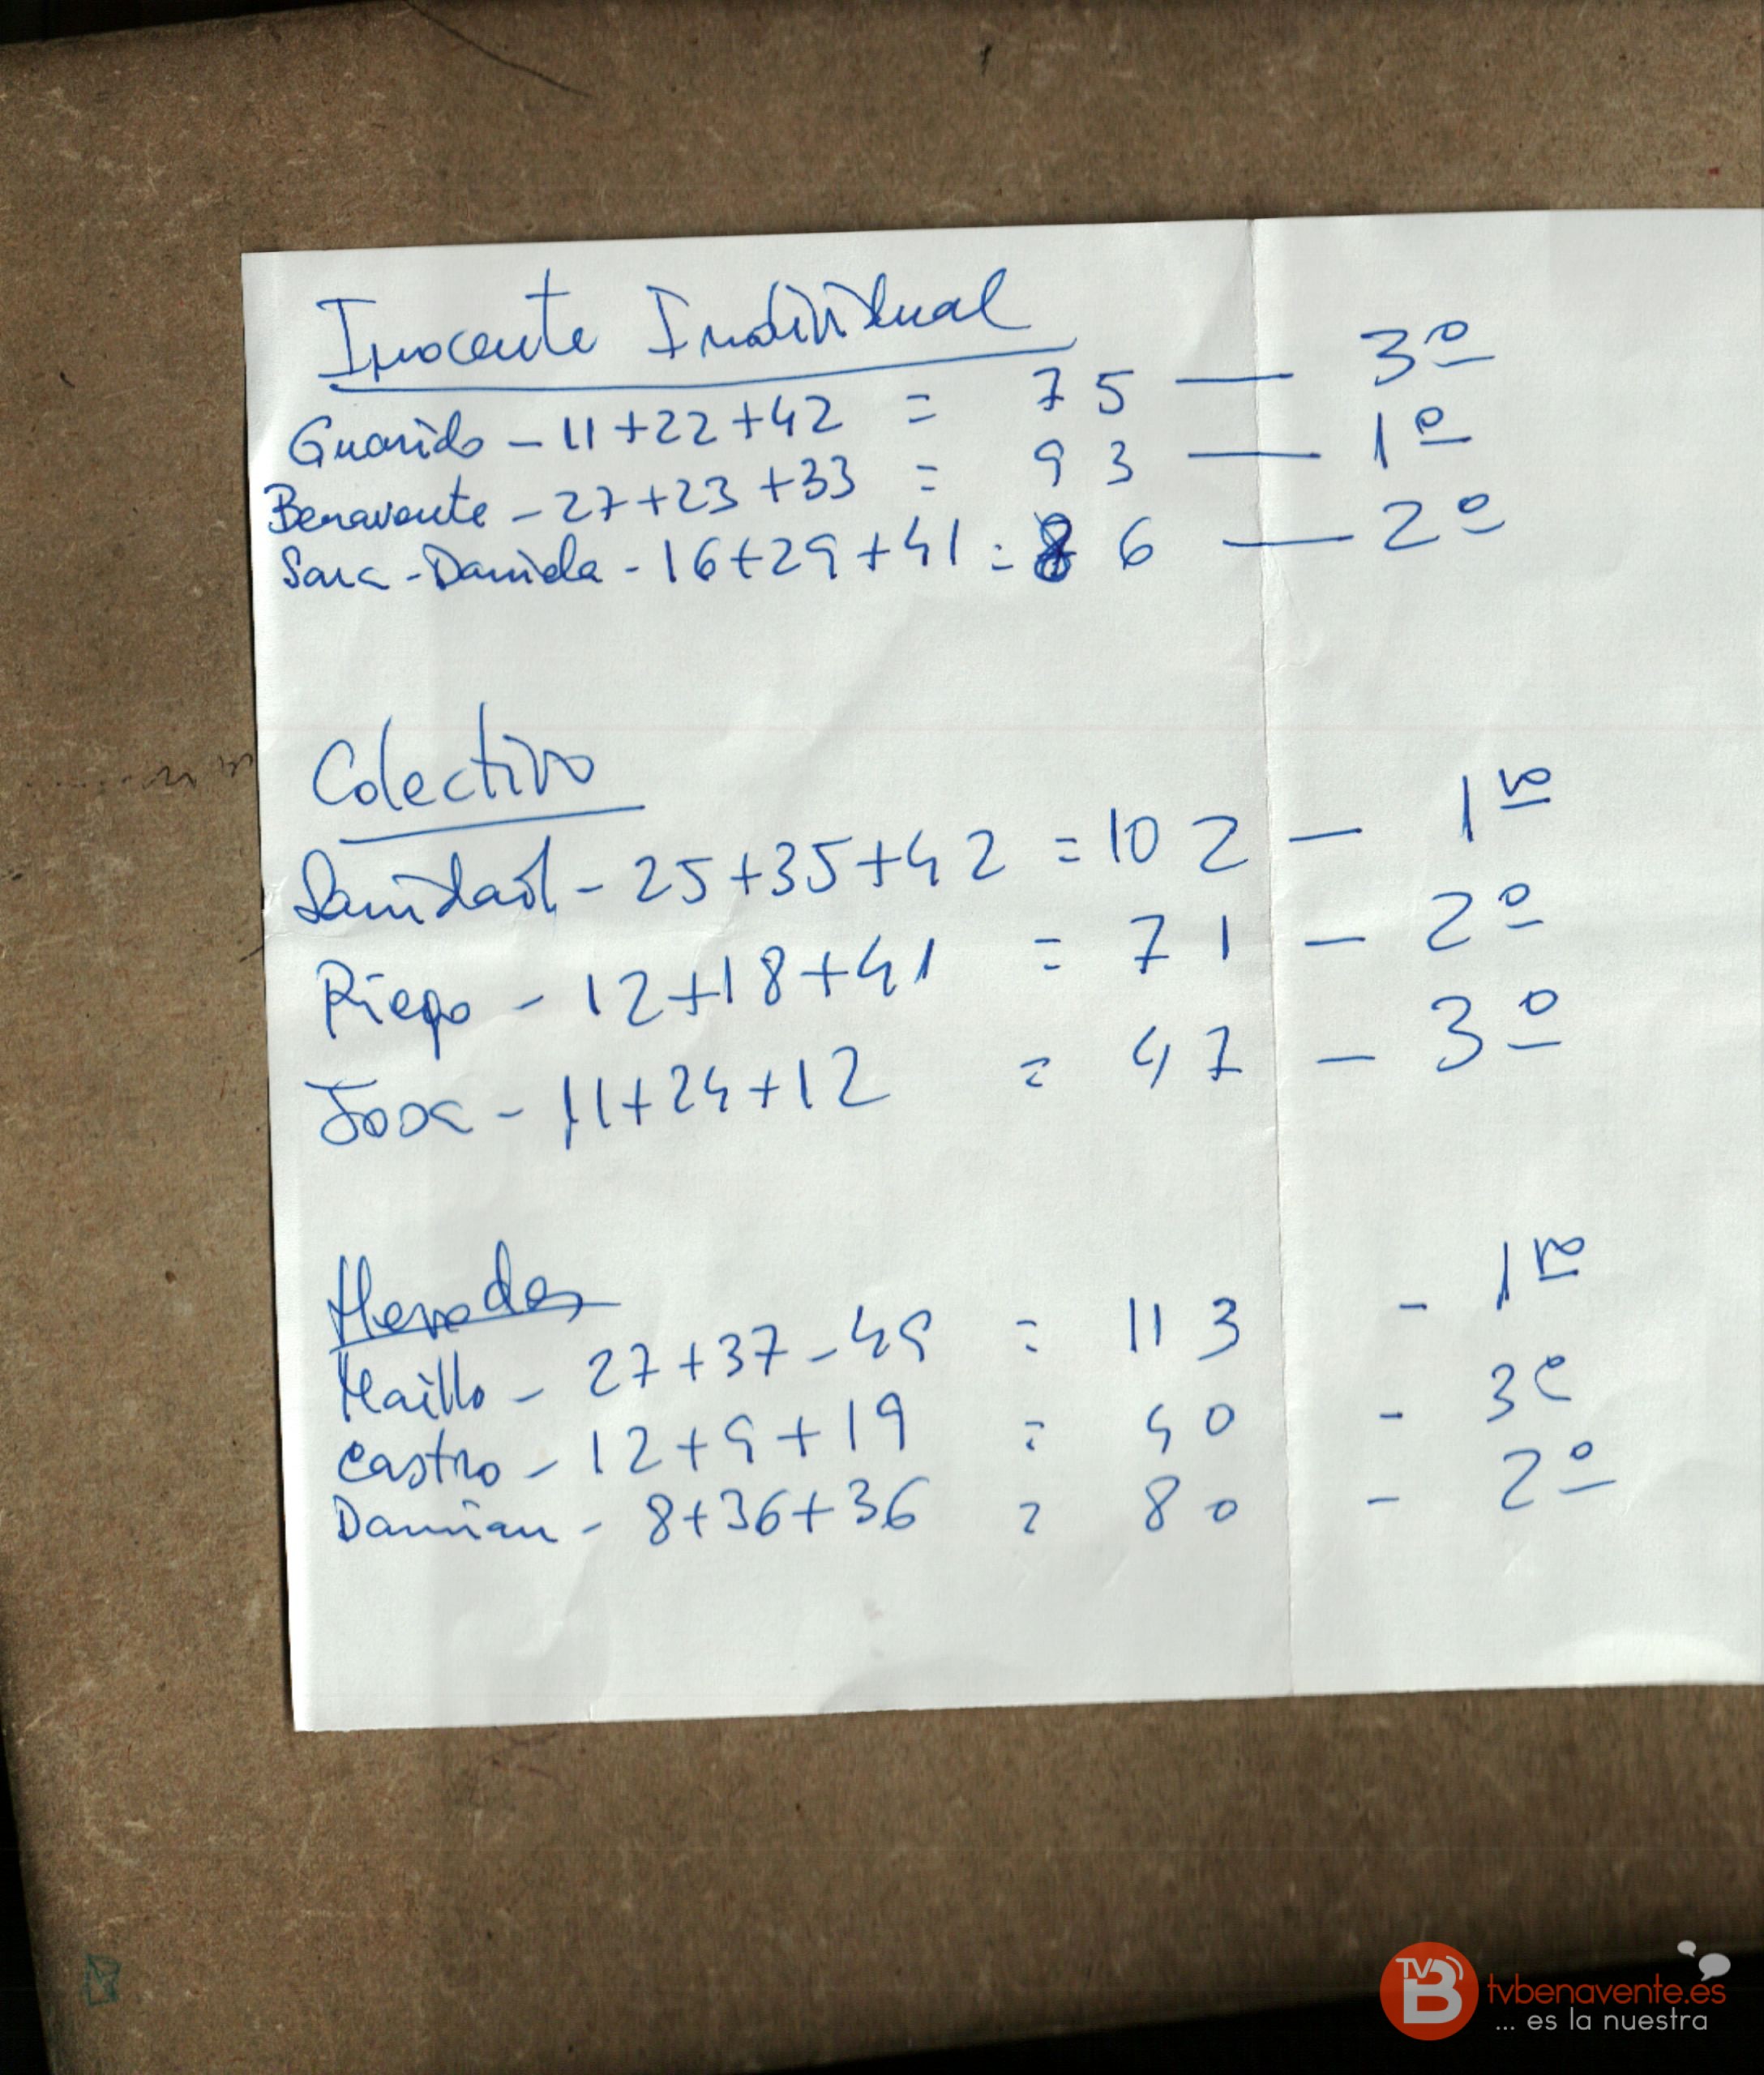 Inocente Individual
Guarido - 11+22+42 = 75 — 3º
Benavente - 27+23+33 = 93 — 1º
Sara - Daniela - 16+29+41 = 86 — 2º
Colectivo
Sanidad - 25+35+42 = 102 - 1ro
Riego - 12+18+41 = 71 - 2º
Fosc - 11+24+12 = 47 - 3º
Herodes
Maillo - 27+37-49 = 113 - 1ro
Castro - 12+9+19 = 40 - 3º
Damian - 8+36+36 = 80 - 2º
TVB tvbenavente.es
... es la nuestra